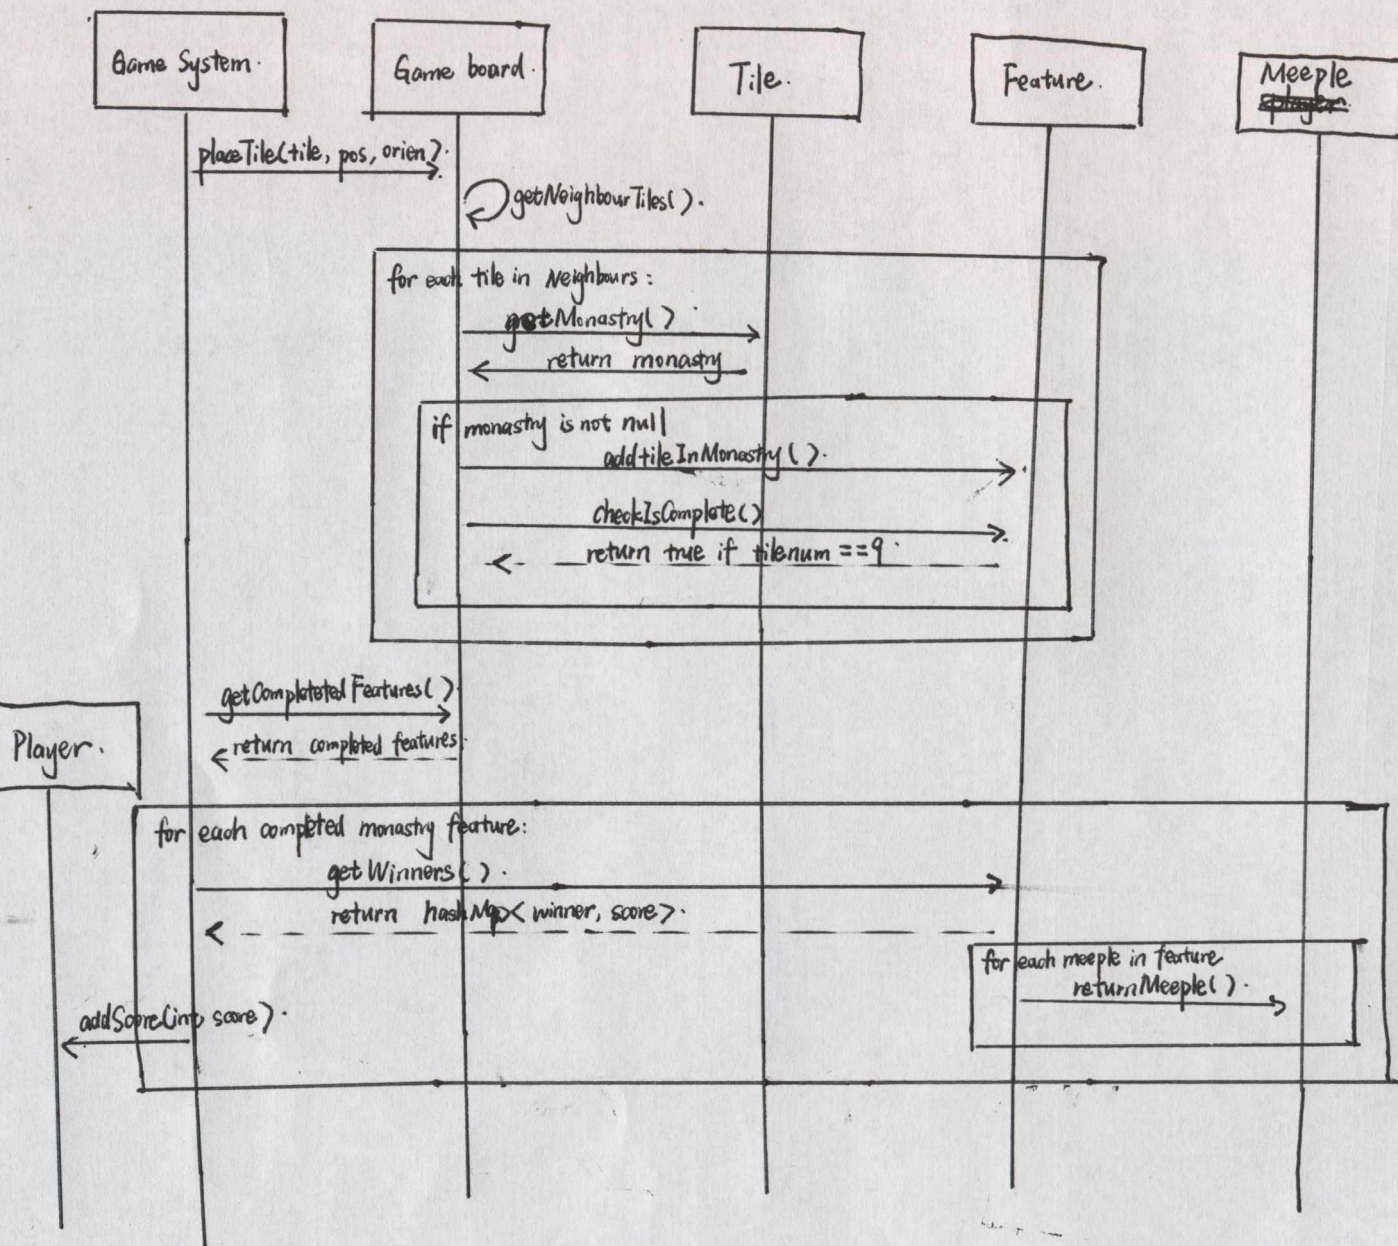 Game System.
Game board.
Tile.
Feature.
Meeple
player.
placeTile(tile, pos, orien).
getNeighbourTiles().
for each tile in Neighbours:
getMonastry()
return monastry
if monastry is not null
addtileInMonastry().
checkIsComplete()
return true if tilenum ==9.
getCompleteted Features()
return completed features.
Player.
for each completed monastry feature:
getWinners().
return hashMap< winner, score>.
for each meeple in feature
returnMeeple().
addScore(int score).